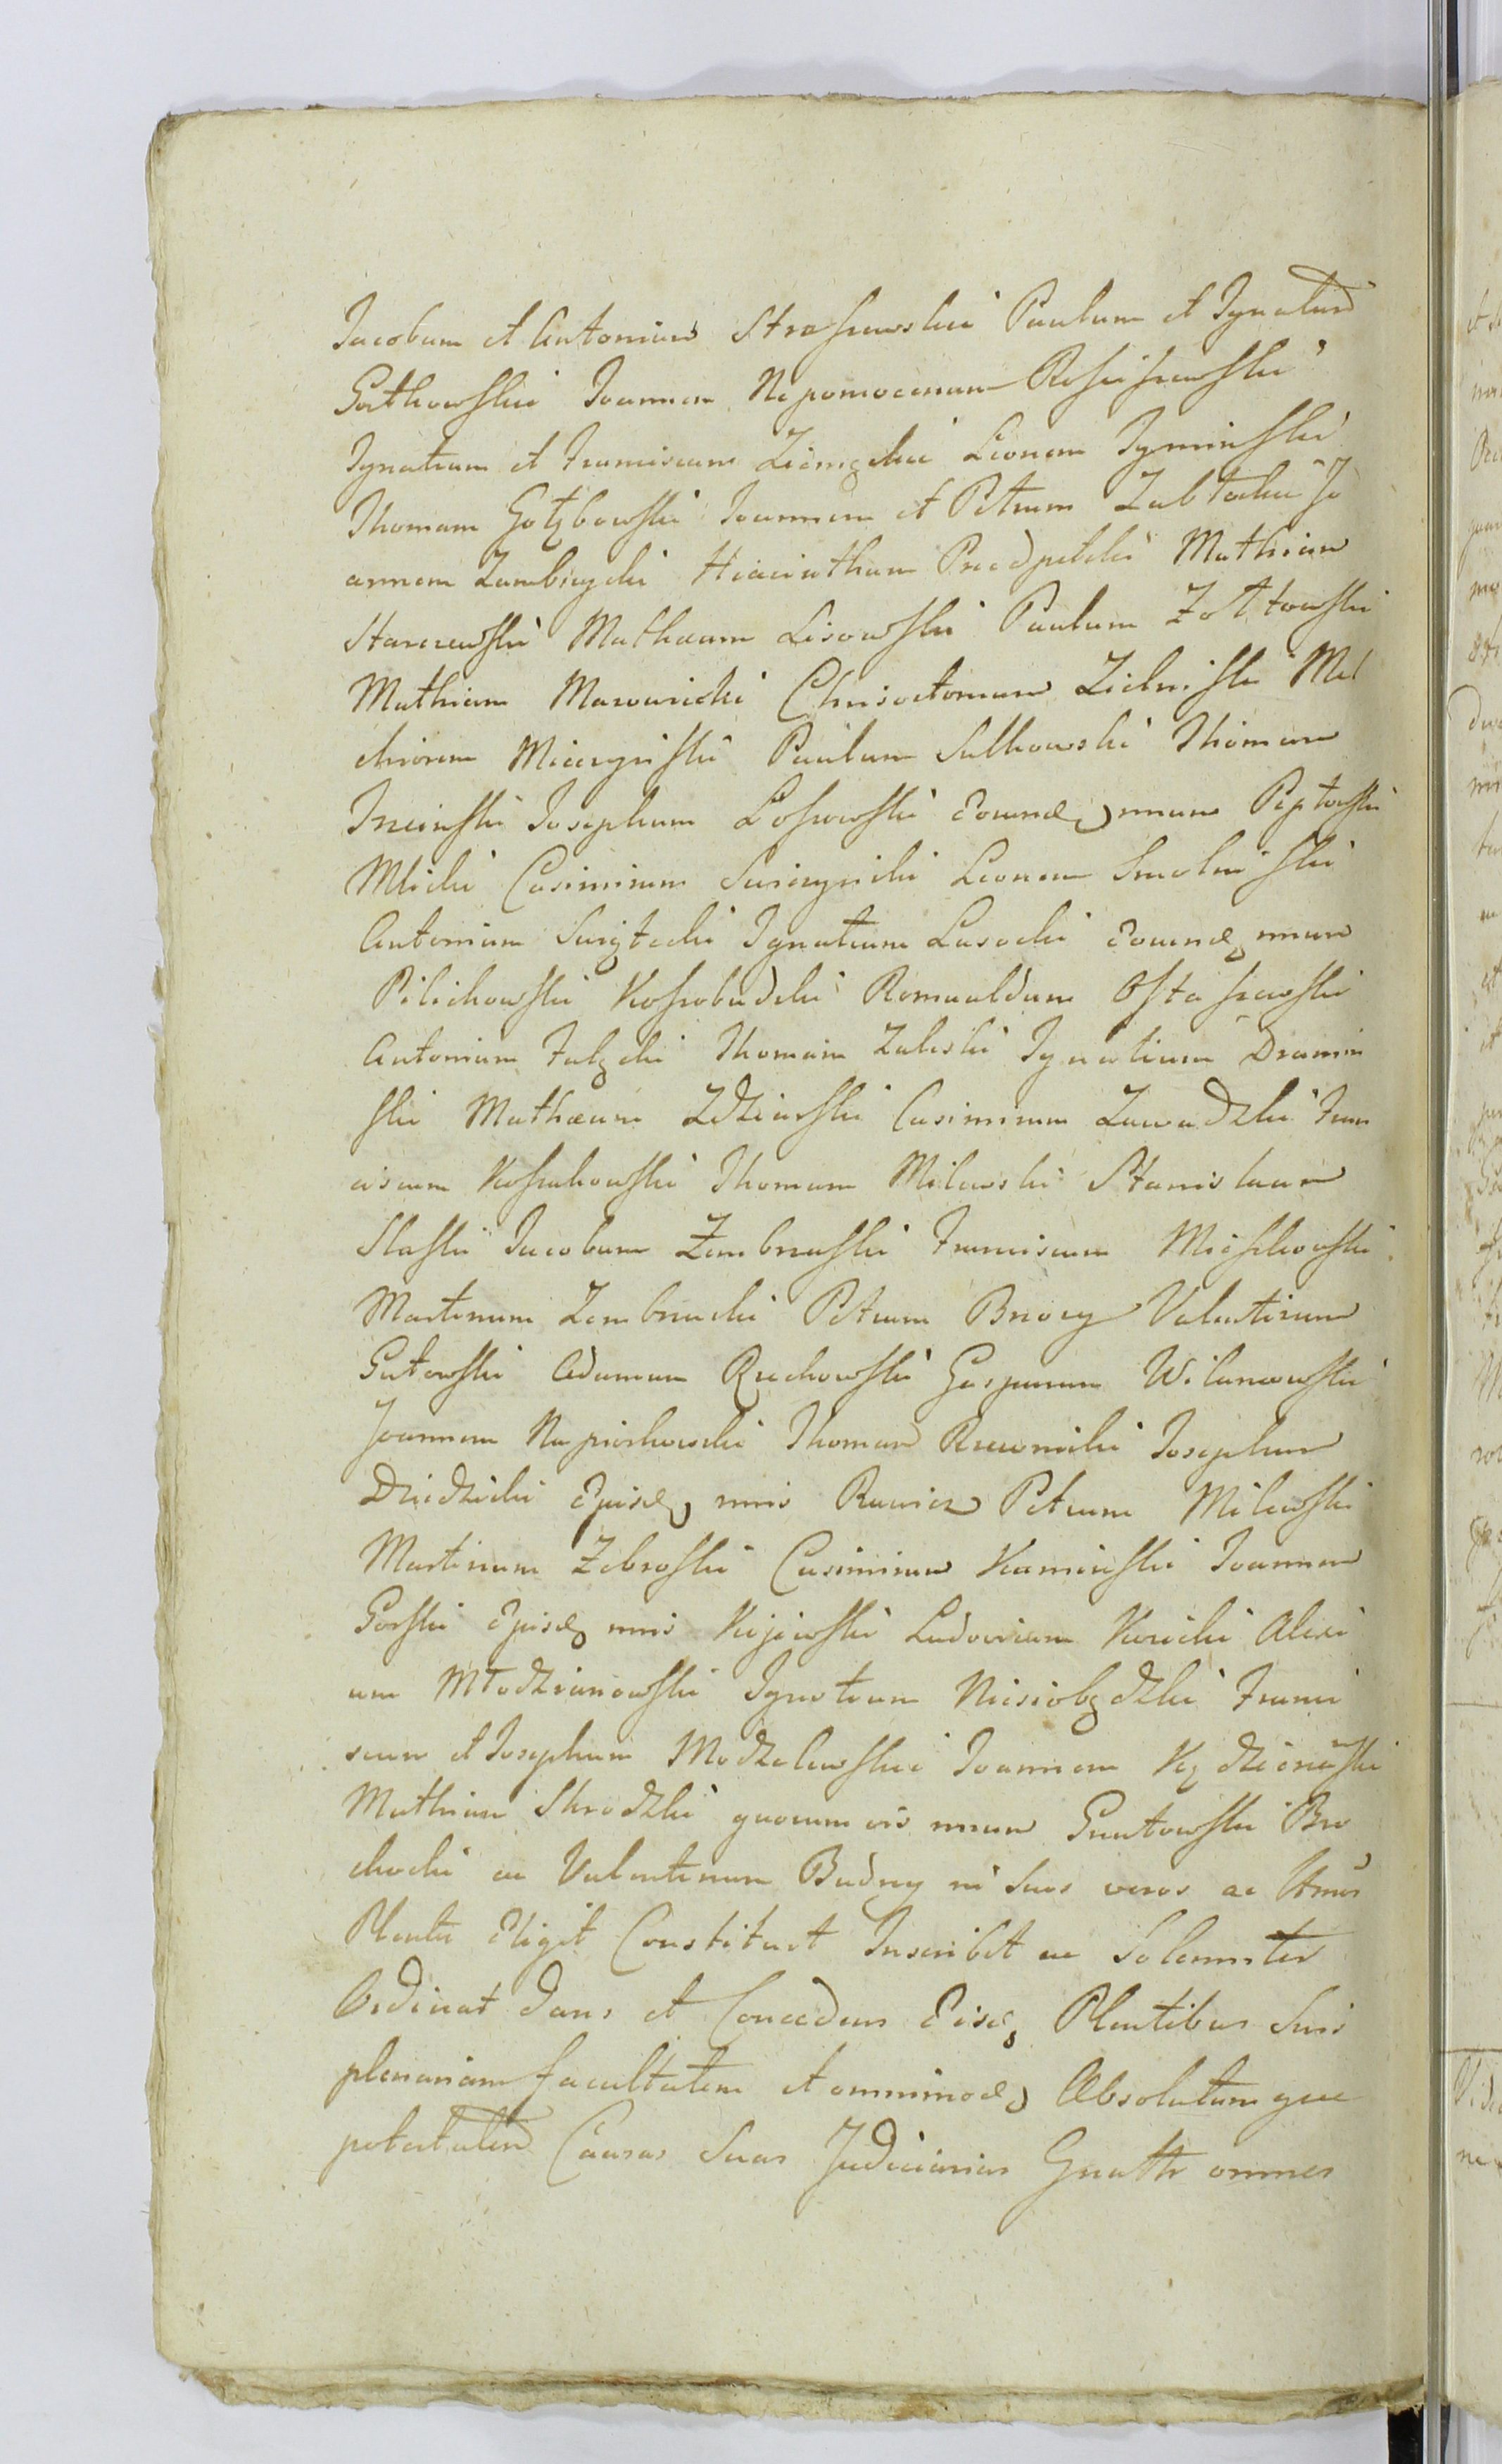 Jacobum et Antonium Straszewskie Paulum et Ignatium
Gostkowskie Joannem Nepomocenum Rościszewski
Ignatium et Franciscum Ziemęckie Leonem Tyminski
Thomam Gołębowski Joannem et Petrum Zabłockie Jo
annem Zambrzycki Hiacinthum Przedpelski Mathiam
Starczewski Mathæum Lisowski Paulum Żółtowski
Mathiam Marowicki Chrisostomum Zielinski Mel
chiorem Mierzynski Paulum Sulkowski Thomam
Trzcinski Josephum Łossowski eoundę nmum Peptowski
Mlicki Casimirum Swierzynski Leonem Smolinski
Antonium Swiętecki Ignatium Lasocki eoundę nmum
Pilichowski Kossobudzki Romualdum Ostaszewski
Antonium Falęcki Thomam Zaleski Ignatium Dramin
ski Mathæum Zdzienski Casimirum Zawadzki Fran
ciscum Kossakowski Thomam Milewski Stanislaum
Slaski Jacobum Zembrzuski Franciscum Mieszkowski
Martinum Zembrzucki Petrum Brzozy Valentinum
Gutowski Adamum Rzechowski Gasparum Wilanowski
Joannem Napiorkowski Thomam Rzewnicki Josephum
Dziedzicki Ejusdę nmis Rawicz Petrum Milewski
Martinum Zebroski Casimirum Kaminski Joannem
Gorski Ejusdę nmis Kijewski Ludovicum Karścki Alexi
um Młodzianowski Ignatium Niesiobędzki Franci
scum et Josephum Modzelewskie Joannem Kędzienski
Mathiam Skrodzki quorumvis nmum Gnatowski Bro
chocki ac Valentinum Budny in Suos veros ac Ltmos
Plentes Eligit Constituit Inscribit ac Solemniter
Ordinat dans et Concedens Eisdę Plentibus Suis
plenariam facultatem et omnimodę Absolutamque
potestatem Causas Suas Judiciarias Gnaltr omnes